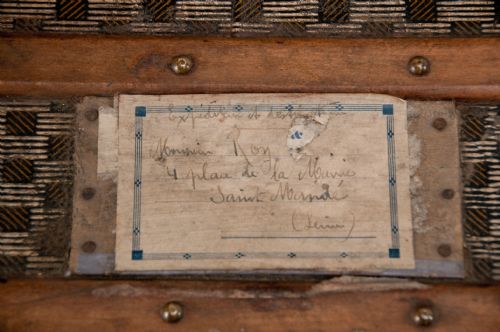 Expéditeur et destinataire
Monsieur Roy
4 place de la Mairie
Saint Mandé
(Seine)